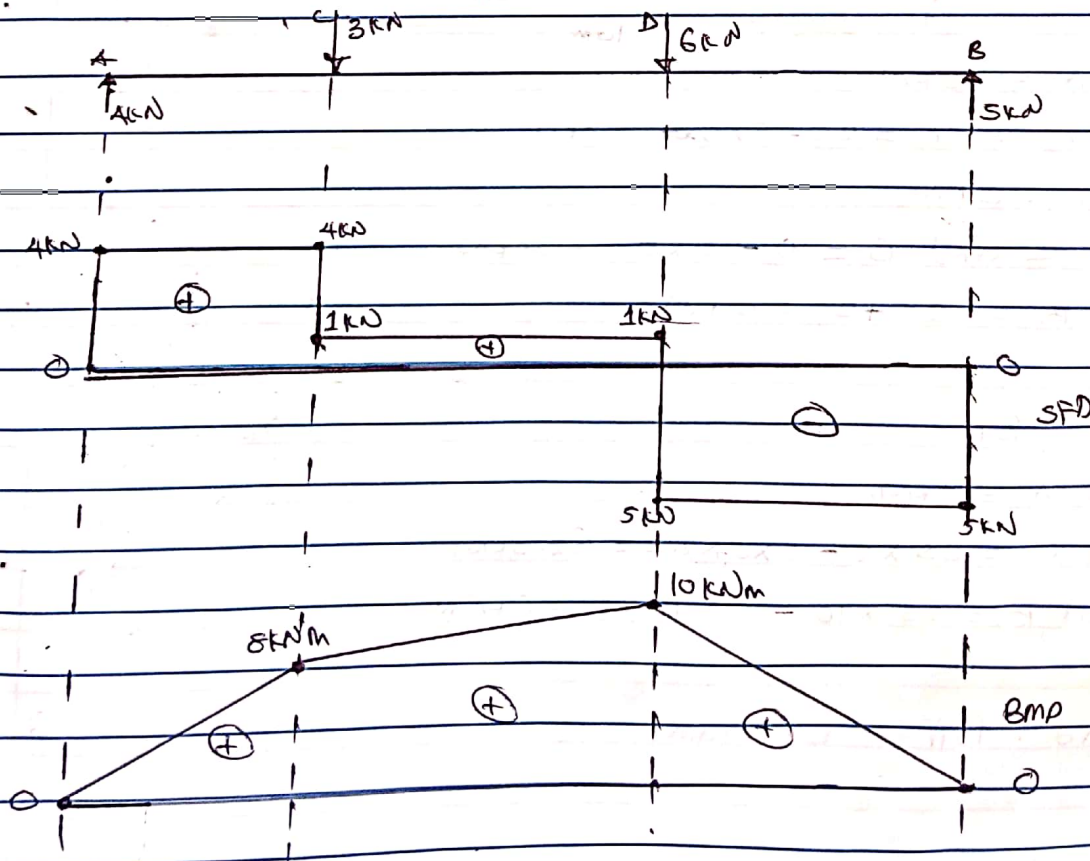 C 3KN D 6KN
A B
4KN 5KN
4KN 4KN
+
1KN 1KN
+
0 0
− SFD
5KN 5KN
10KNm
8KNm
+ + + BMD
0 0